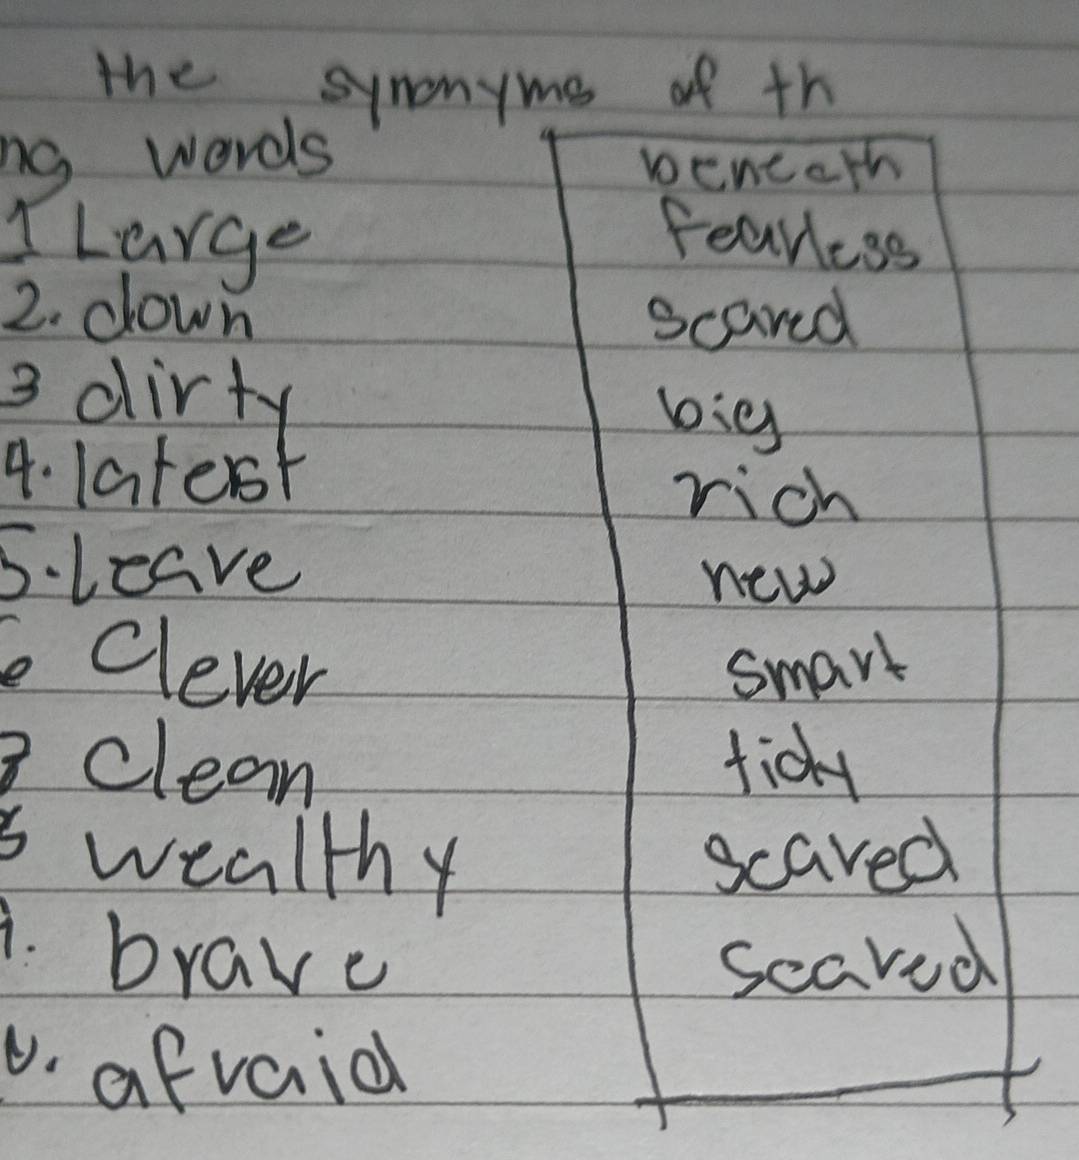 the synonyms of th
ng words
1 Large
2. down
3 dirty
4. laterst
5. Leave
6 Clever
7 Clean
8 Wealthy
9. brave
10. afraid
beneath
fearless
scared
big
rich
new
smart
tidy
scared
scared